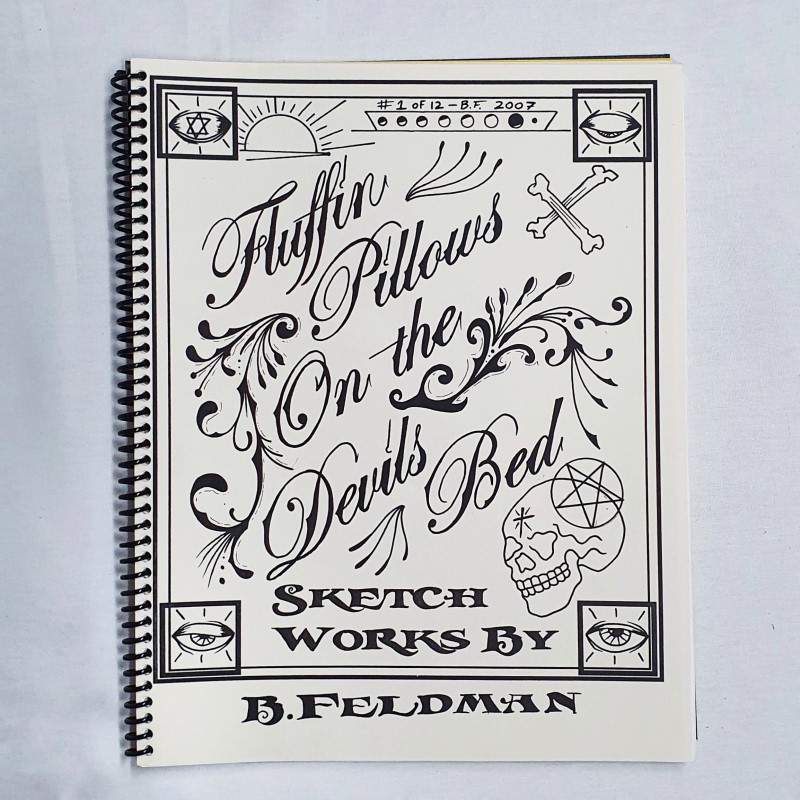 #1 OF 12 - B.F. 2007
Fluffin
Pillows
On the
Devils Bed
SKETCH
WORKS BY
B. FELDMAN